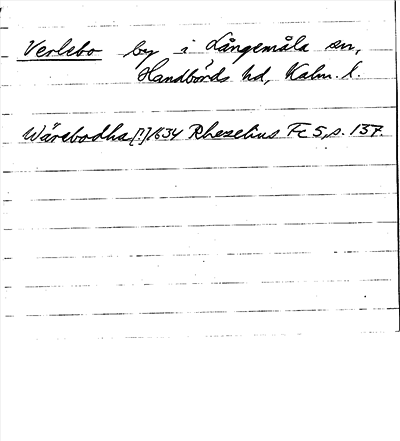 Verlebo by i Långemåla sn,
Handbörds hd, Kalm. l.
Wärebodha [?] 1634 Rhezelius Fc 5, s. 137.